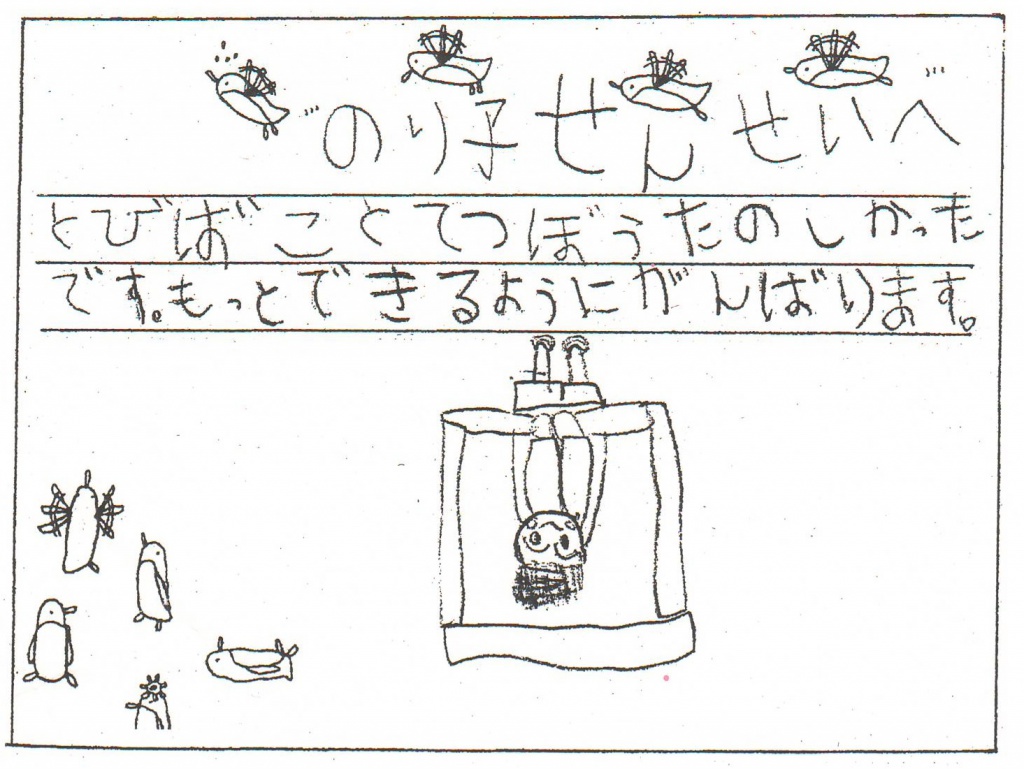 のり子せんせいへ
とびばことてつぼうたのしかった
です。もっとできるようにがんばります。